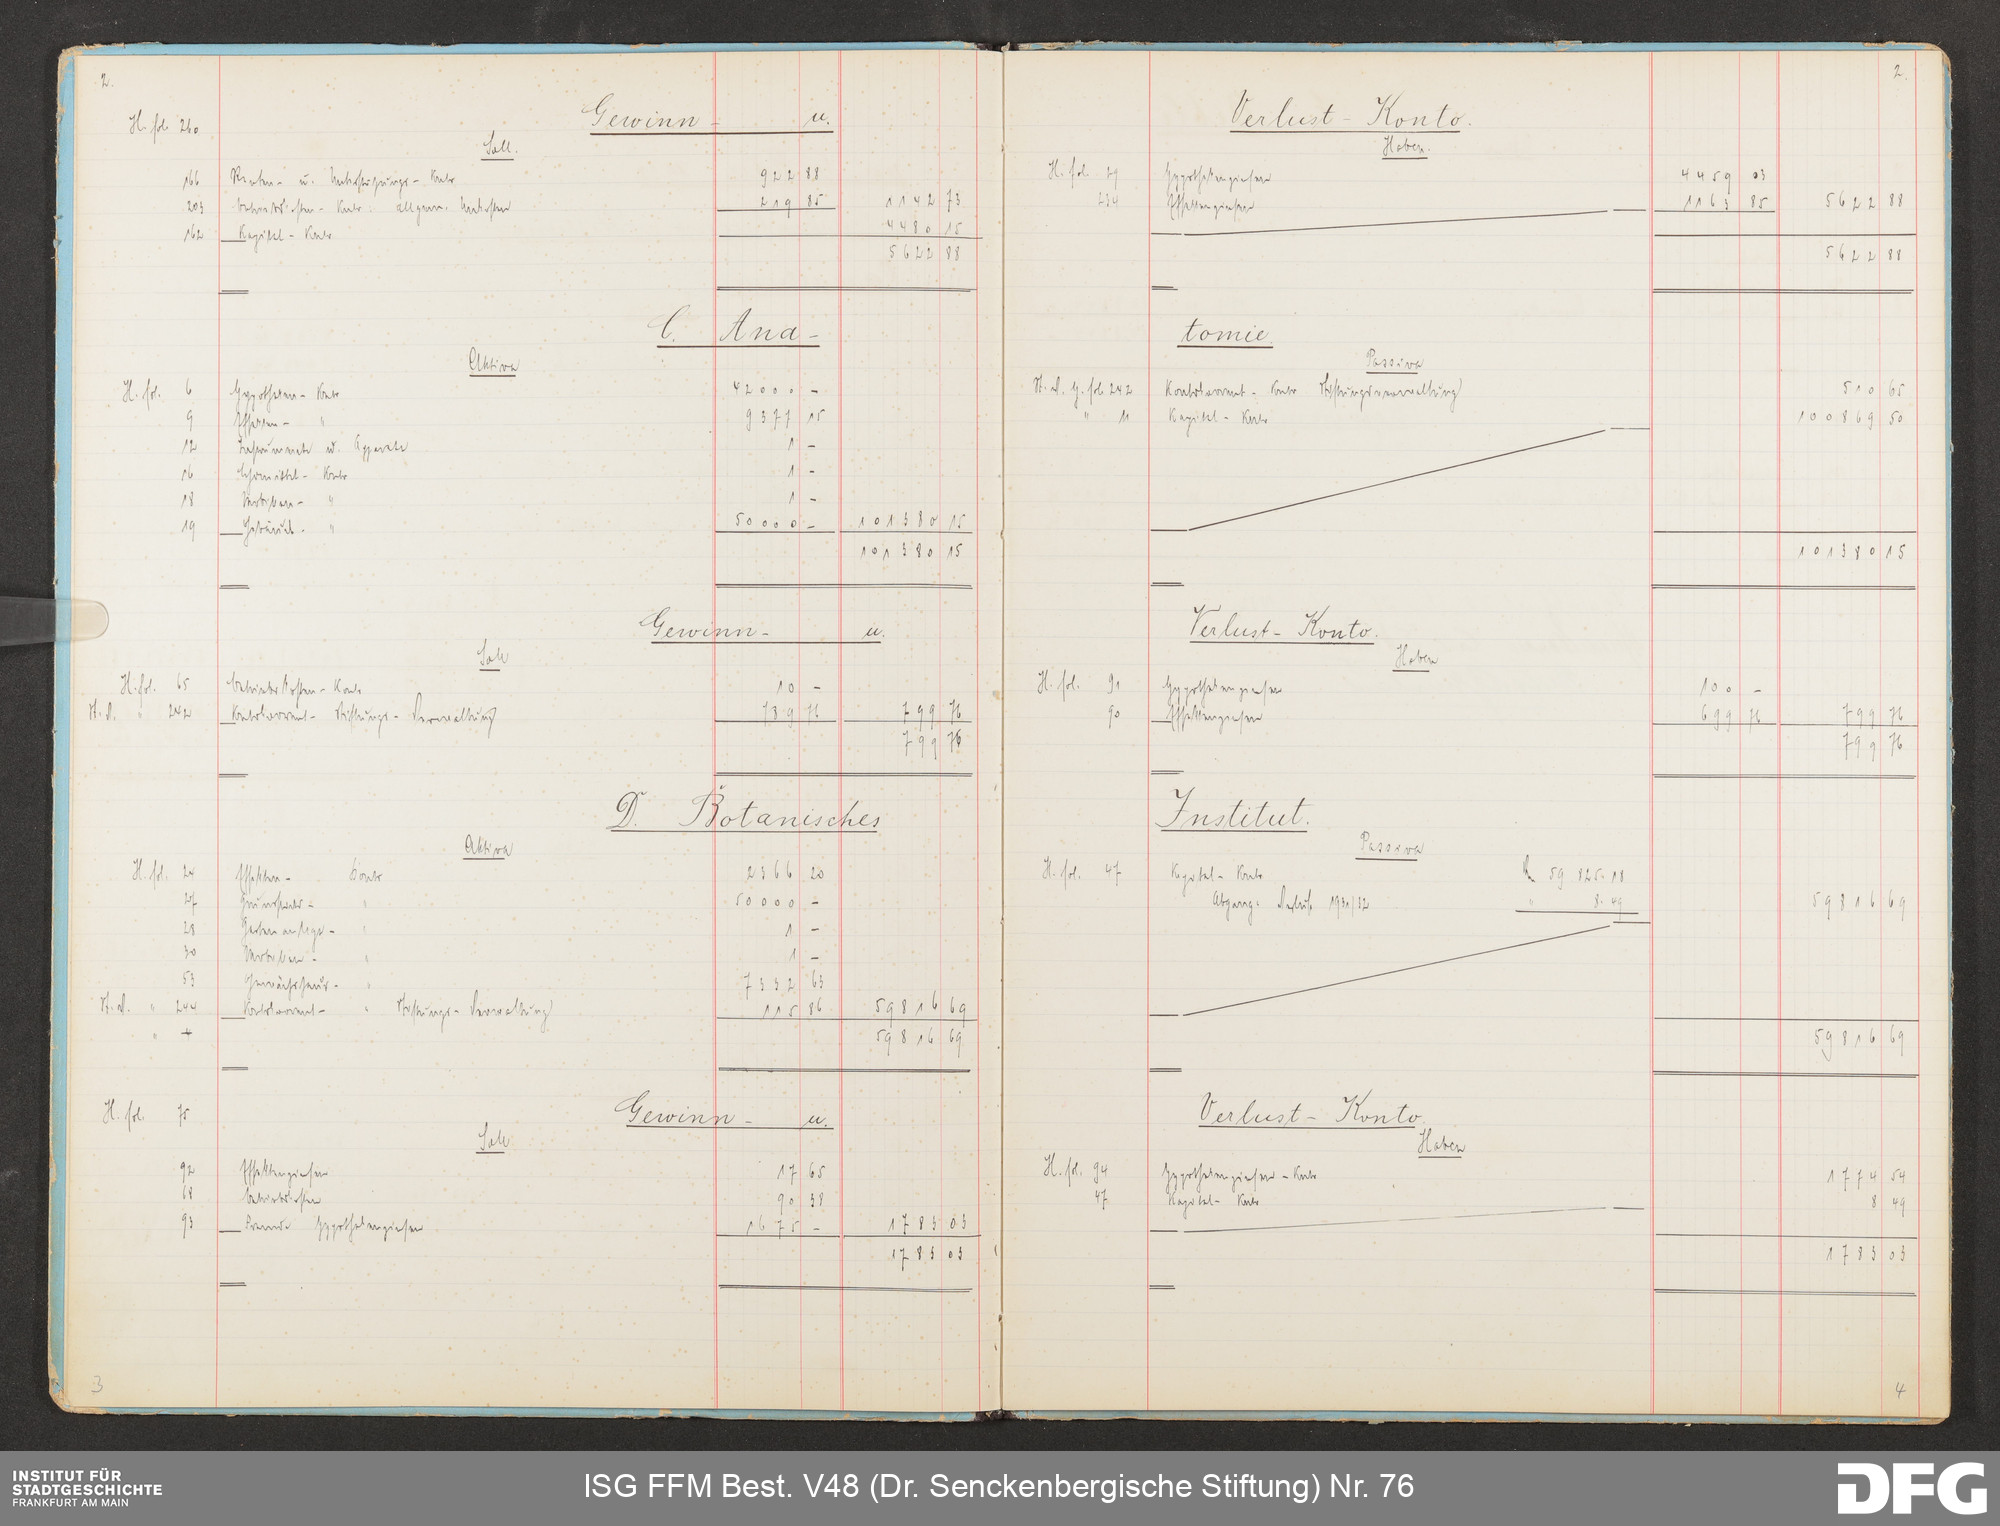 2.
H. fol. 260
Gewinn - u.
Soll.
166 Renten- u. Unterstützungs- Konto 922 88
203 Betriebskosten- Konto: allgem. Unkosten 219 85 1142 73
162 Kapital- Konto 4480 15
5622 88
C. Ana-
Aktiva
H. fol. 6 Hypotheken- Konto 42000 -
9 Effekten- " 9377 15
12 Instrumente u. Apparate 1 -
16 Lehrmittel- Konto 1 -
18 Mobilien- " 1 -
19 Gebäude- " 50000 - 101380 15
101380 15
Gewinn- u.
Soll
H. fol. 65 Betriebskosten- Konto 10 -
St. V. " 242 Kontokorrent- Stiftungs- Verwaltung 789 76 799 76
799 76
D. Botanisches
Aktiva
H. fol. 24 Effekten- Konto 2366 20
27 Grundstücks- " 50000 -
28 Gartenanlage- " 1 -
30 Mobilien- " 1 -
53 Gewächshaus- " 7332 63
St. V. " 244 Kontokorrent- " Stiftungs- Verwaltung 115 86 59816 69
" 59816 69
H. fol. 75
Gewinn- u.
Soll
92 Effektenzinsen 17 65
68 Betriebskosten 90 38
93 Hypothekenzinsen 1675 - 1783 03
1783 03
3
2.
Verlust- Konto.
Haben.
H. fol. Hypothekenzinsen 4459 03
234 Effektenzinsen 1163 85 5622 88
5622 88
tomie.
Passiva
St. V. H. fol. 242 Kontokorrent- Konto Stiftungsverwaltung 510 65
" 11 Kapital- Konto 100869 50
101380 15
Verlust- Konto.
Haben
H. fol. 91 Hypothekenzinsen 100 -
90 Effektenzinsen 699 76 799 76
799 76
Institut.
Passiva
H. fol. 47 Kapital- Konto 59 825.18
Abgang: Verlust 1931/32 " 8.49 59816 69
59816 69
Verlust- Konto
Haben
H. fol. 94 Hypothekenzinsen- Konto 1774 54
47 Kapital- Konto 8 49
1783 03
4
INSTITUT FÜR
STADTGESCHICHTE
FRANKFURT AM MAIN
ISG FFM Best. V48 (Dr. Senckenbergische Stiftung) Nr. 76
DFG